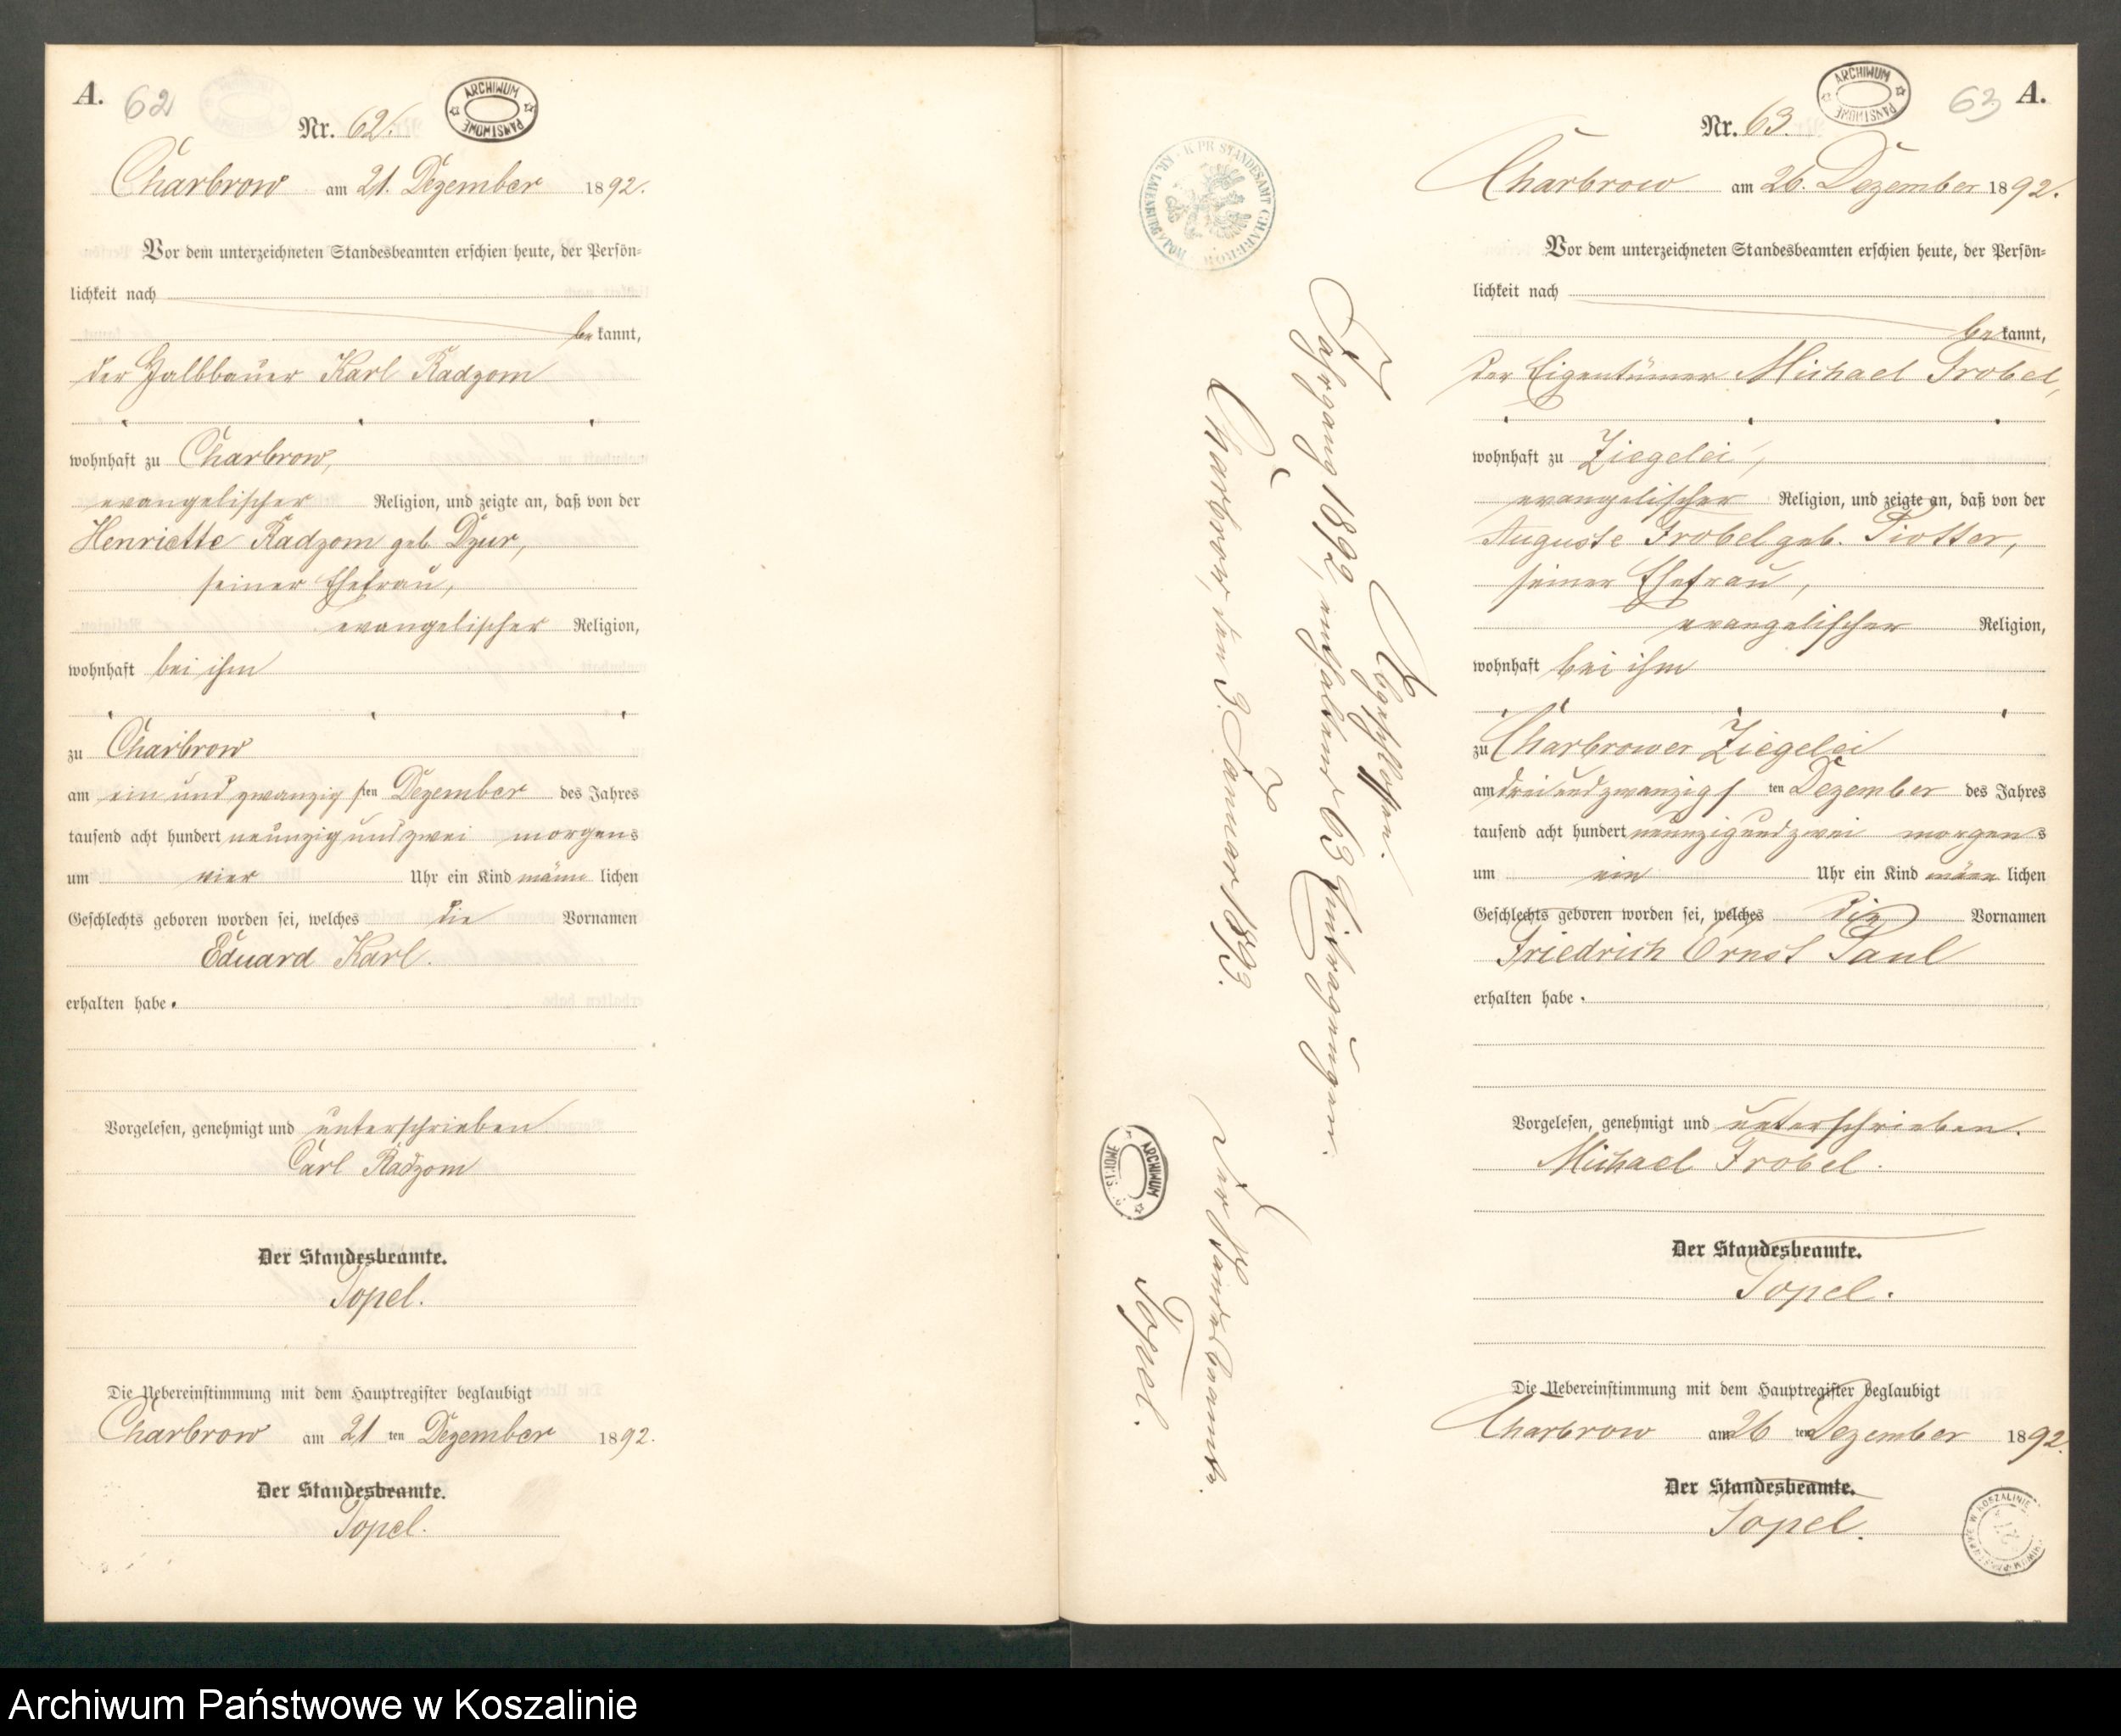 A.
62
ARCHIWUM PAŃSTWOWE
Nr. 62.
Charbrow am 21. Dezember 1892.
Vor dem unterzeichneten Standesbeamten erschien heute, der Persön-
lichkeit nach
be kannt,
der Halbbauer Karl Radzom
wohnhaft zu Charbrow,
evangelischer Religion, und zeigte an, daß von der
Henriette Radzom geb. Dzur,
seiner Ehefrau,
evangelischer Religion,
wohnhaft bei ihm
zu Charbrow
am ein und zwanzig sten Dezember des Jahres
tausend acht hundert neunzig und zwei morgens
um vier Uhr ein Kind männ lichen
Geschlechts geboren worden sei, welches die Vornamen
Eduard Karl.
erhalten habe.
Vorgelesen, genehmigt und unterschrieben
Carl Radzom
Der Standesbeamte.
Topel.
Die Uebereinstimmung mit dem Hauptregister beglaubigt
Charbrow am 21 ten Dezember 1892.
Der Standesbeamte.
Topel.
K. PR. STANDESAMT CHARBROW
Abgeschlossen.
Jahrgang 1892, enthaltend 63 Eintragungen.
Charbrow, den 3. Januar 1893.
Der Standesbeamte.
Topel.
ARCHIWUM
ARCHIWUM PAŃSTWOWE
63
A.
Nr. 63.
Charbrow am 26. Dezember 1892.
Vor dem unterzeichneten Standesbeamten erschien heute, der Persön-
lichkeit nach
be kannt,
der Eigentümer Michael Frobel,
wohnhaft zu Ziegelei,
evangelischer Religion, und zeigte an, daß von der
Auguste Frobel geb. Piotter,
seiner Ehefrau,
evangelischer Religion,
wohnhaft bei ihm
zu Charbrower Ziegelei
am drei und zwanzigs ten Dezember des Jahres
tausend acht hundert neunzig und zwei morgens
um ein Uhr ein Kind männ lichen
Geschlechts geboren worden sei, welches die Vornamen
Friedrich Ernst Paul
erhalten habe.
Vorgelesen, genehmigt und unterschrieben.
Michael Frobel.
Der Standesbeamte.
Topel.
Die Uebereinstimmung mit dem Hauptregister beglaubigt
Charbrow am 26 ten Dezember 1892.
Der Standesbeamte.
Topel.
Archiwum Państwowe w Koszalinie